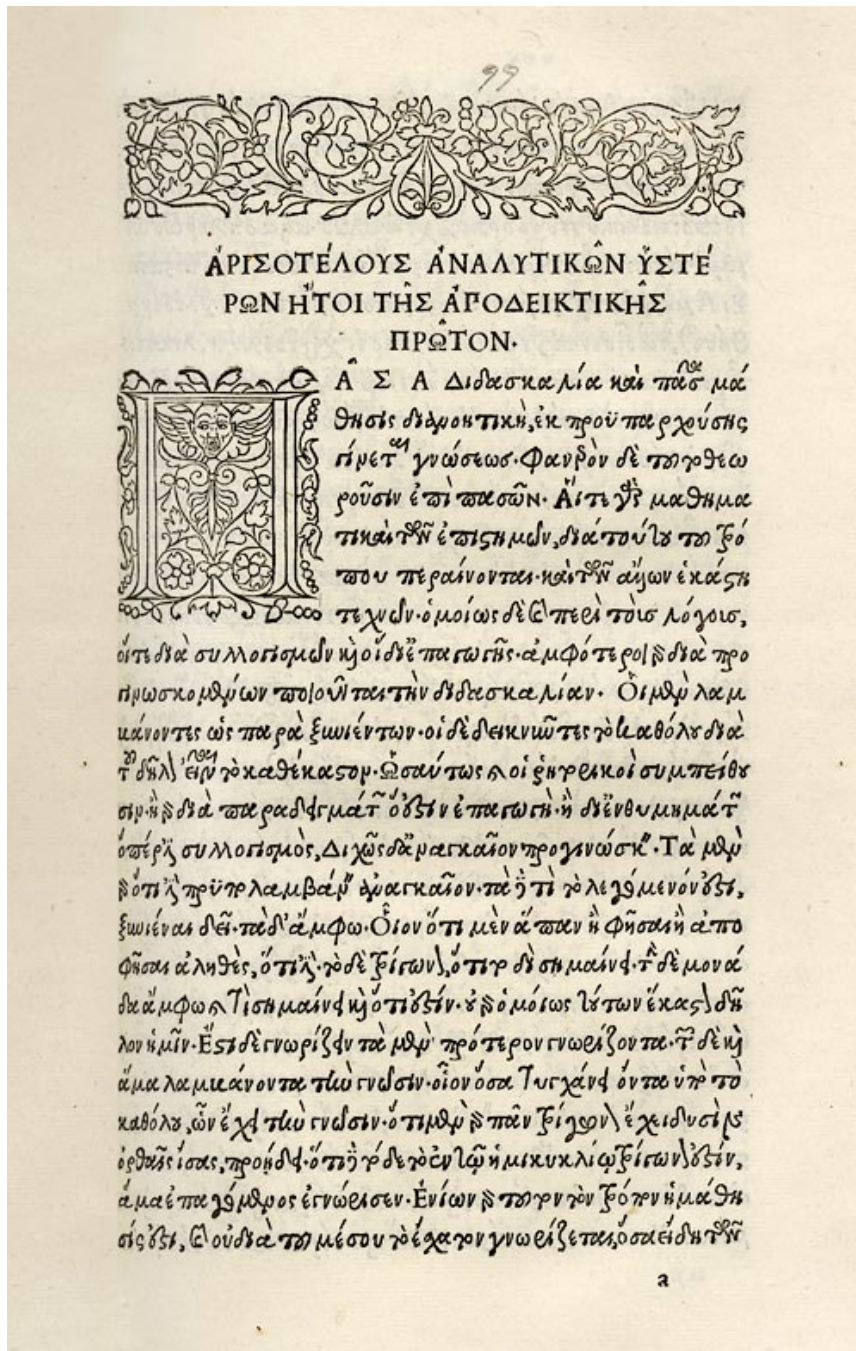 99
ἈΡΙΣΟΤΈΛΟΥΣ ἈΝΑΛΥΤΙΚΩ͂Ν ὙΣΤΕ
ΡΩΝ Ἤ́ΤΟΙ ΤΗ͂Σ ἈΠΟΔΕΙΚΤΙΚΗ͂Σ
ΠΡΩ͂ΤΟΝ.
ΠΑ͂ΣΑ Διδασκαλία καὶ πᾶσα μά
θησις διανοητικὴ, ἐκ προϋπαρχούσης
γίνεται γνώσεως. Φανερὸν δὲ τοῦτο θεω
ροῦσιν ἐπὶ πασῶν. Αἵ τε γὰρ μαθημα
τικαὶ τῶν ἐπιστημῶν, διὰ τούτου τοῦ τρό
που περαίνονται. καὶ τῶν ἄλλων ἑκάστη
τεχνῶν. ὁμοίως δὲ καὶ περὶ τοὺς λόγους,
οἵ τε διὰ συλλογισμῶν καὶ οἱ δι’ ἐπαγωγῆς. ἀμφότεροι γὰρ διὰ προ
γινωσκομένων ποιοῦνται τὴν διδασκαλίαν. Οἱ μὲν λαμ
βάνοντες ὡς παρὰ ξυνιέντων. οἱ δὲ δεικνύντες τὸ καθόλου διὰ
τοῦ δῆλον εἶναι τὸ καθέκαστον. Ὡσαύτως δὲ οἱ ῥητορικοὶ συμπείθου
σιν. ἢ γὰρ διὰ παραδειγμάτων ὅ ἐστιν ἐπαγωγὴ. ἢ δι’ ἐνθυμημάτων
ὅπερ ἐστὶ συλλογισμὸς. Διχῶς δ’ ἀναγκαῖον προγινώσκειν. Τὰ μὲν
γὰρ ὅτι ἐστὶ προϋπολαμβάνειν ἀναγκαῖον. τὰ δὲ τί τὸ λεγόμενόν ἐστι,
ξυνιέναι δεῖ. τὰ δ’ ἄμφω. Οἷον ὅτι μὲν ἅπαν ἢ φῆσαι ἢ ἀπο
φῆσαι ἀληθὲς, ὅτι ἐστὶ. τὸ δὲ τρίγωνον, ὅτι τοδὶ σημαίνει. τὴν δὲ μονά
δα ἄμφω καὶ τί σημαίνει καὶ ὅτι ἐστίν. οὐ γὰρ ὁμοίως τούτων ἕκαστον δῆ
λον ἡμῖν. Ἔστι δὲ γνωρίζειν τὰ μὲν πρότερον γνωρίζοντα. τῶν δὲ καὶ
ἅμα λαμβάνοντα τὴν γνῶσιν. οἷον ὅσα τυγχάνει ὄντα ὑπὸ τὸ
καθόλου, ὧν ἔχει τὴν γνῶσιν. ὅτι μὲν γὰρ πᾶν τρίγωνον ἔχει δυσὶν
ὀρθαῖς ἴσας, προῄδει. ὅτι δὲ τόδε τὸ ἐν τῷ ἡμικυκλίῳ τρίγωνόν ἐστιν,
ἅμα ἐπαγόμενος ἐγνώρισεν. Ἐνίων γὰρ τοῦτον τὸν τρόπον ἡ μάθη
σίς ἐστι, καὶ οὐ διὰ τοῦ μέσου τὸ ἔσχατον γνωρίζεται, ὅσα εἴδη τῶν
a